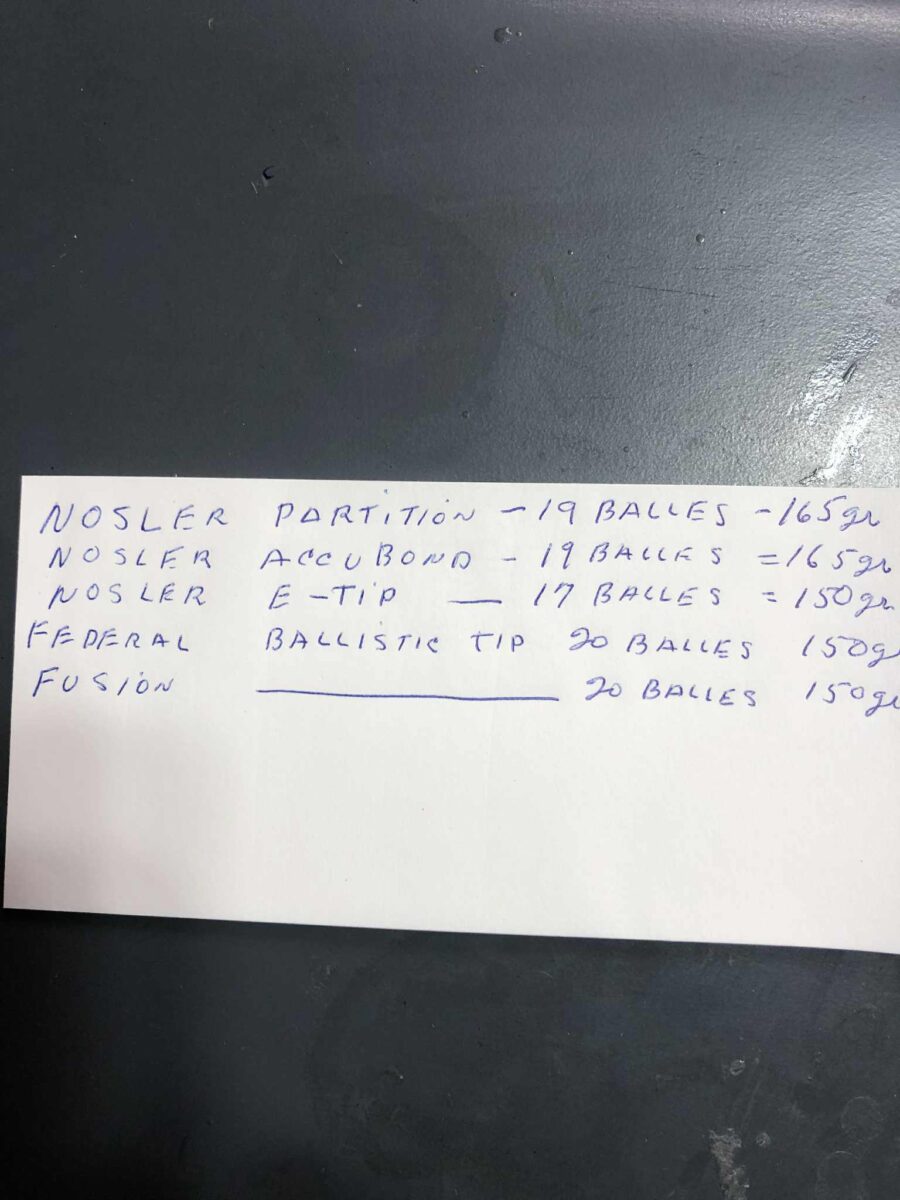 NOSLER PARTITION - 19 BALLES - 165gr
NOSLER ACCUBOND - 19 BALLES = 165gr
NOSLER E-TIP — 17 BALLES = 150gr
FEDERAL BALLISTIC TIP 20 BALLES 150gr
FUSION ——— 20 BALLES 150gr